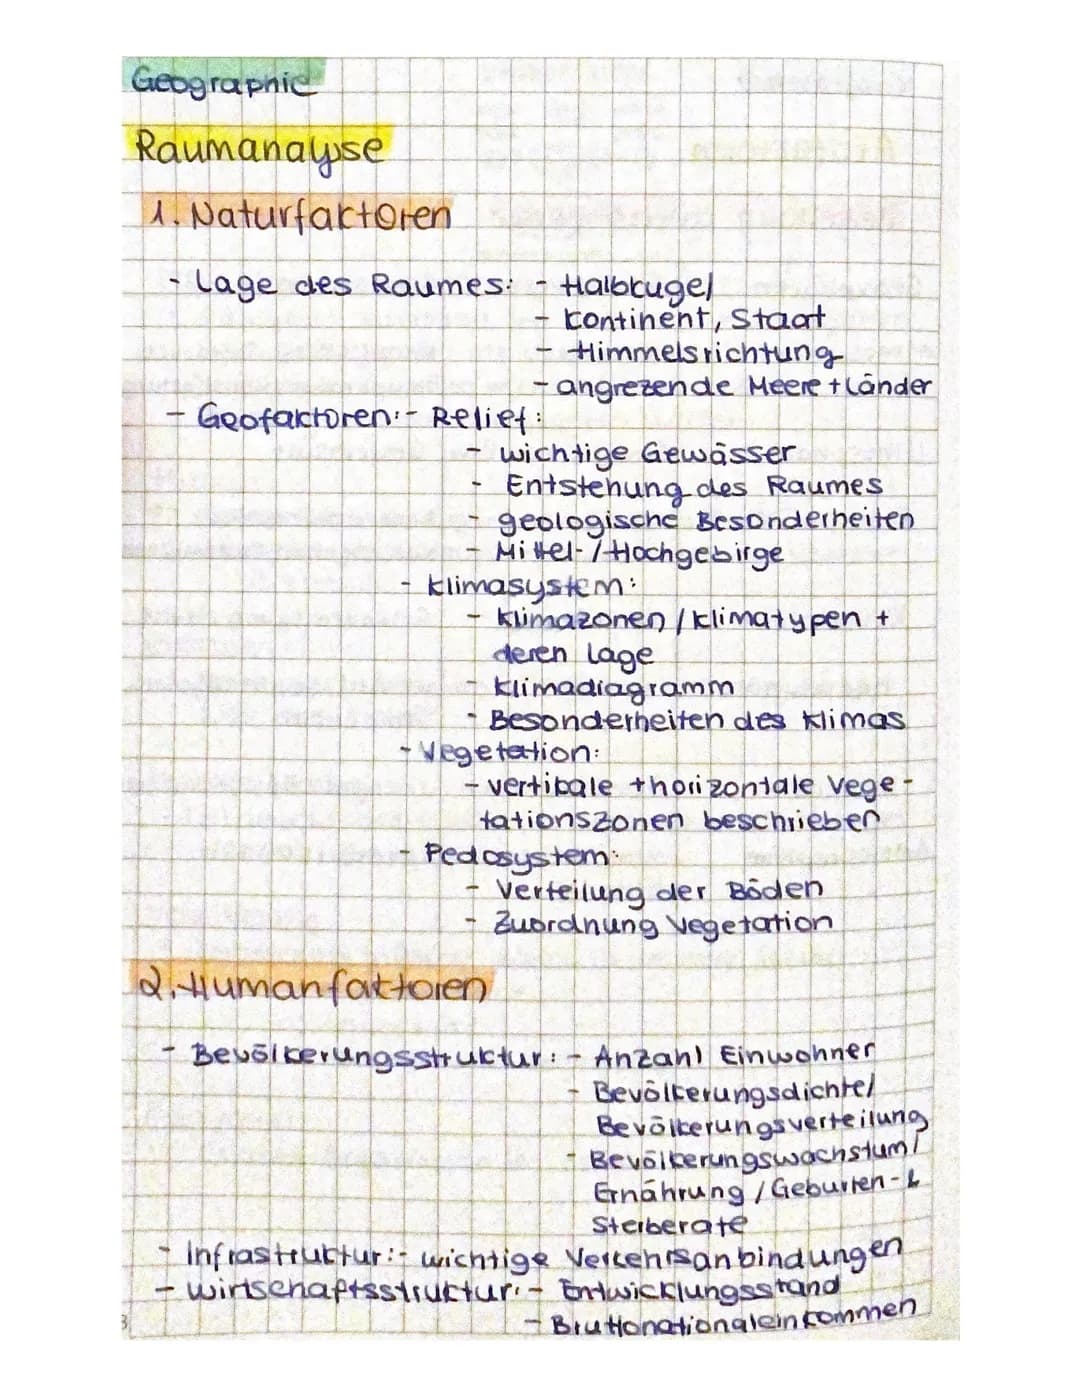 Geographie
Raumanalyse
1. Naturfaktoren
- Lage des Raumes: - Halbkugel
- Kontinent, Staat
- Himmelsrichtung
- angrezende Meere + Länder
- Geofaktoren: - Relief:
- wichtige Gewässer
- Entstehung des Raumes
- geologische Besonderheiten
- Mittel- / Hochgebirge
- Klimasystem:
- Klimazonen / Klimatypen +
deren Lage
- Klimadiagramm
- Besonderheiten des Klimas
- Vegetation:
- vertikale + horizontale Vege-
tationszonen beschrieben
- Pedosystem:
- Verteilung der Böden
- Zuordnung Vegetation
2. Humanfaktoren
- Bevölkerungsstruktur: - Anzahl Einwohner
- Bevölkerungsdichte/
Bevölkerungsverteilung
- Bevölkerungswachstum/
Ernährung / Geburten- &
Sterberate
- Infrastruktur: - wichtige Verkehrsanbindungen
- Wirtschaftsstruktur: - Entwicklungsstand
- Bruttonationaleinkommen